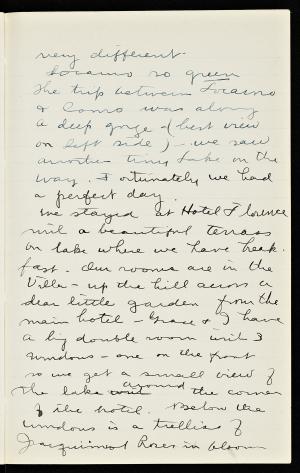 very different.
Locarno so green
The trip between Locarno
& Como was along
a deep gorge - (best view
on left side) - we saw
another tiny Lake on the
way. Fortunately we had
a perfect day.
We stayed at Hotel Florence
with a beautiful terrass
on lake where we have break-
fast. Our rooms are in the
Villa - up the hill across a
dear little garden from the
main hotel - Grace & I have
a big double room with 3
windows - one on the front
so we get a small view of
the lake around the corner
of the hotel. Below the
windows is a trellis of
Jacquiminot Roses in bloom